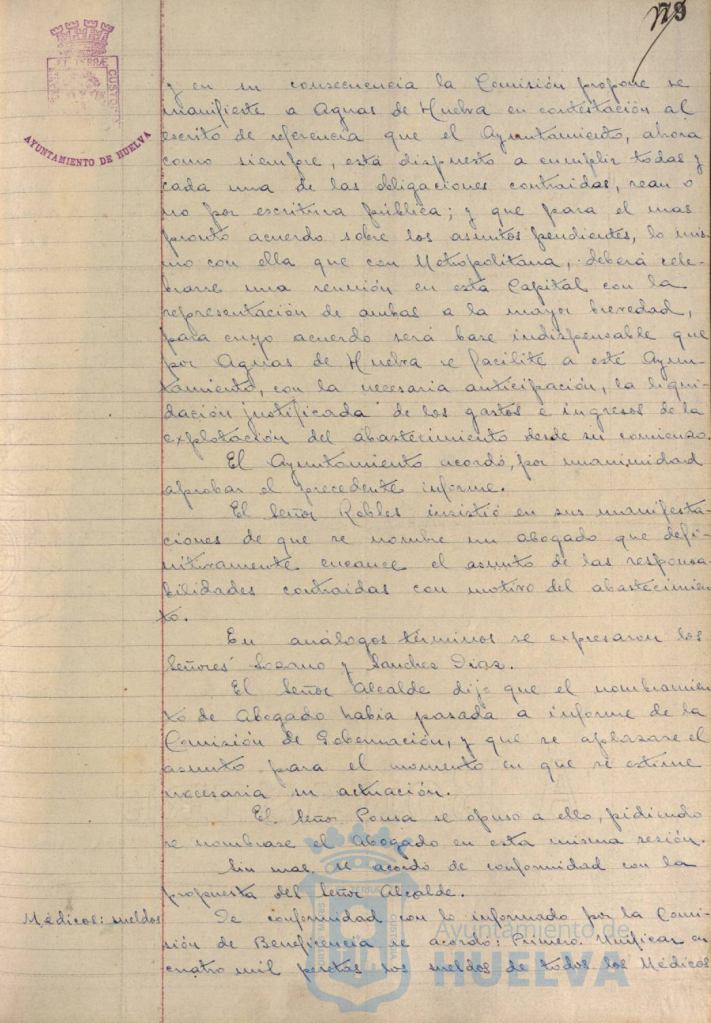 173
PORTUS MARIS ET TERRAE CUSTODIA
AYUNTAMIENTO DE HUELVA
y en su consecuencia la Comisión propone se
manifieste a Aguas de Huelva en contestación al
escrito de referencia que el Ayuntamiento, ahora
como siempre, está dispuesto a cumplir todas y
cada una de las obligaciones contraidas, sean o
no por escritura pública; y que para el mas
pronto acuerdo sobre los asuntos pendientes, lo mis-
mo con ella que con Metropolitana, deberá cele-
brarse una reunión en esta Capital con la
representación de ambas a la mayor brevedad,
para cuyo acuerdo será base indispensable que
por Aguas de Huelva se facilite a este Ayun-
tamiento, con la necesaria anticipación, la liqui-
dación justificada de los gastos e ingresos de la
explotación del abastecimiento desde su comienzo.
El Ayuntamiento acordó, por unanimidad
aprobar el precedente informe.
El Señor Robles insistió en sus manifesta-
ciones de que se nombre un abogado que defi-
nitivamente encauce el asunto de las responsa-
bilidades contraidas con motivo del abastecimien-
to.
En análogos términos se expresaron los
Señores Lozano y Sanchez Diaz.
El Señor Alcalde dijo que el nombramien-
to de Abogado habia pasado a informe de la
Comisión de Gobernación, y que se aplazase el
asunto para el momento en que se estime
necesaria su actuación.
El Señor Ponsa se opuso a ello, pidiendo
se nombrase el Abogado en esta misma sesión.
Sin mas, se acordó de conformidad con la
propuesta del Señor Alcalde.
Médicos: sueldos
De conformidad con lo informado por la Comi-
sión de Beneficencia se acordó: Primero. Unificar en
cuatro mil pesetas los sueldos de todos los Médicos
Ayuntamiento de
HUELVA